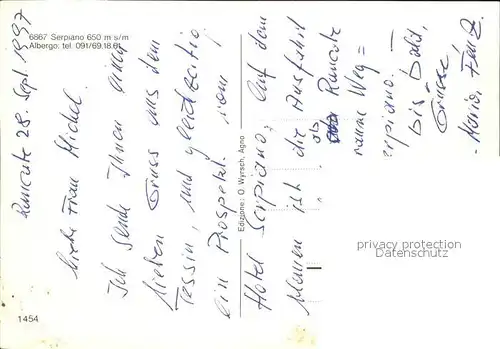 6867 Serpiano 650 m s/m
Albergo: tel. 091/69.18.61
Rancate 28. Sept. 1997
Liebe Frau Michel.
Ich sende Ihnen einen
lieben Gruss aus dem
Tessin, und gleichzeitig
ein Prospekt. vom
Hotel Serpiano. Auf dem
ist die Ausfahrt
ob Rancate
Weg =
erpiano. –
Bis bald,
Grüsse
Edizione: O. Wyrsch, Agno
1454
privacy protection
Datenschutz